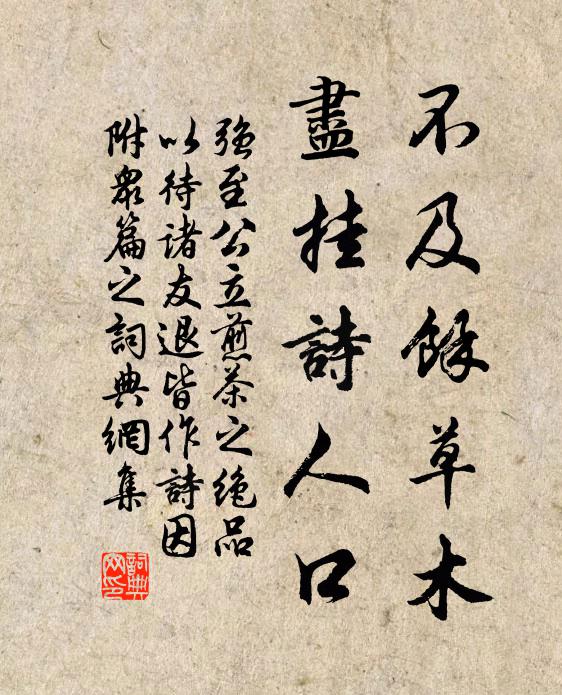 不及餘草木
盡挂詩人口
強至公立煎茶之绝品
以待诸友退皆作詩因
附衆篇之詞典網集
詞典網印